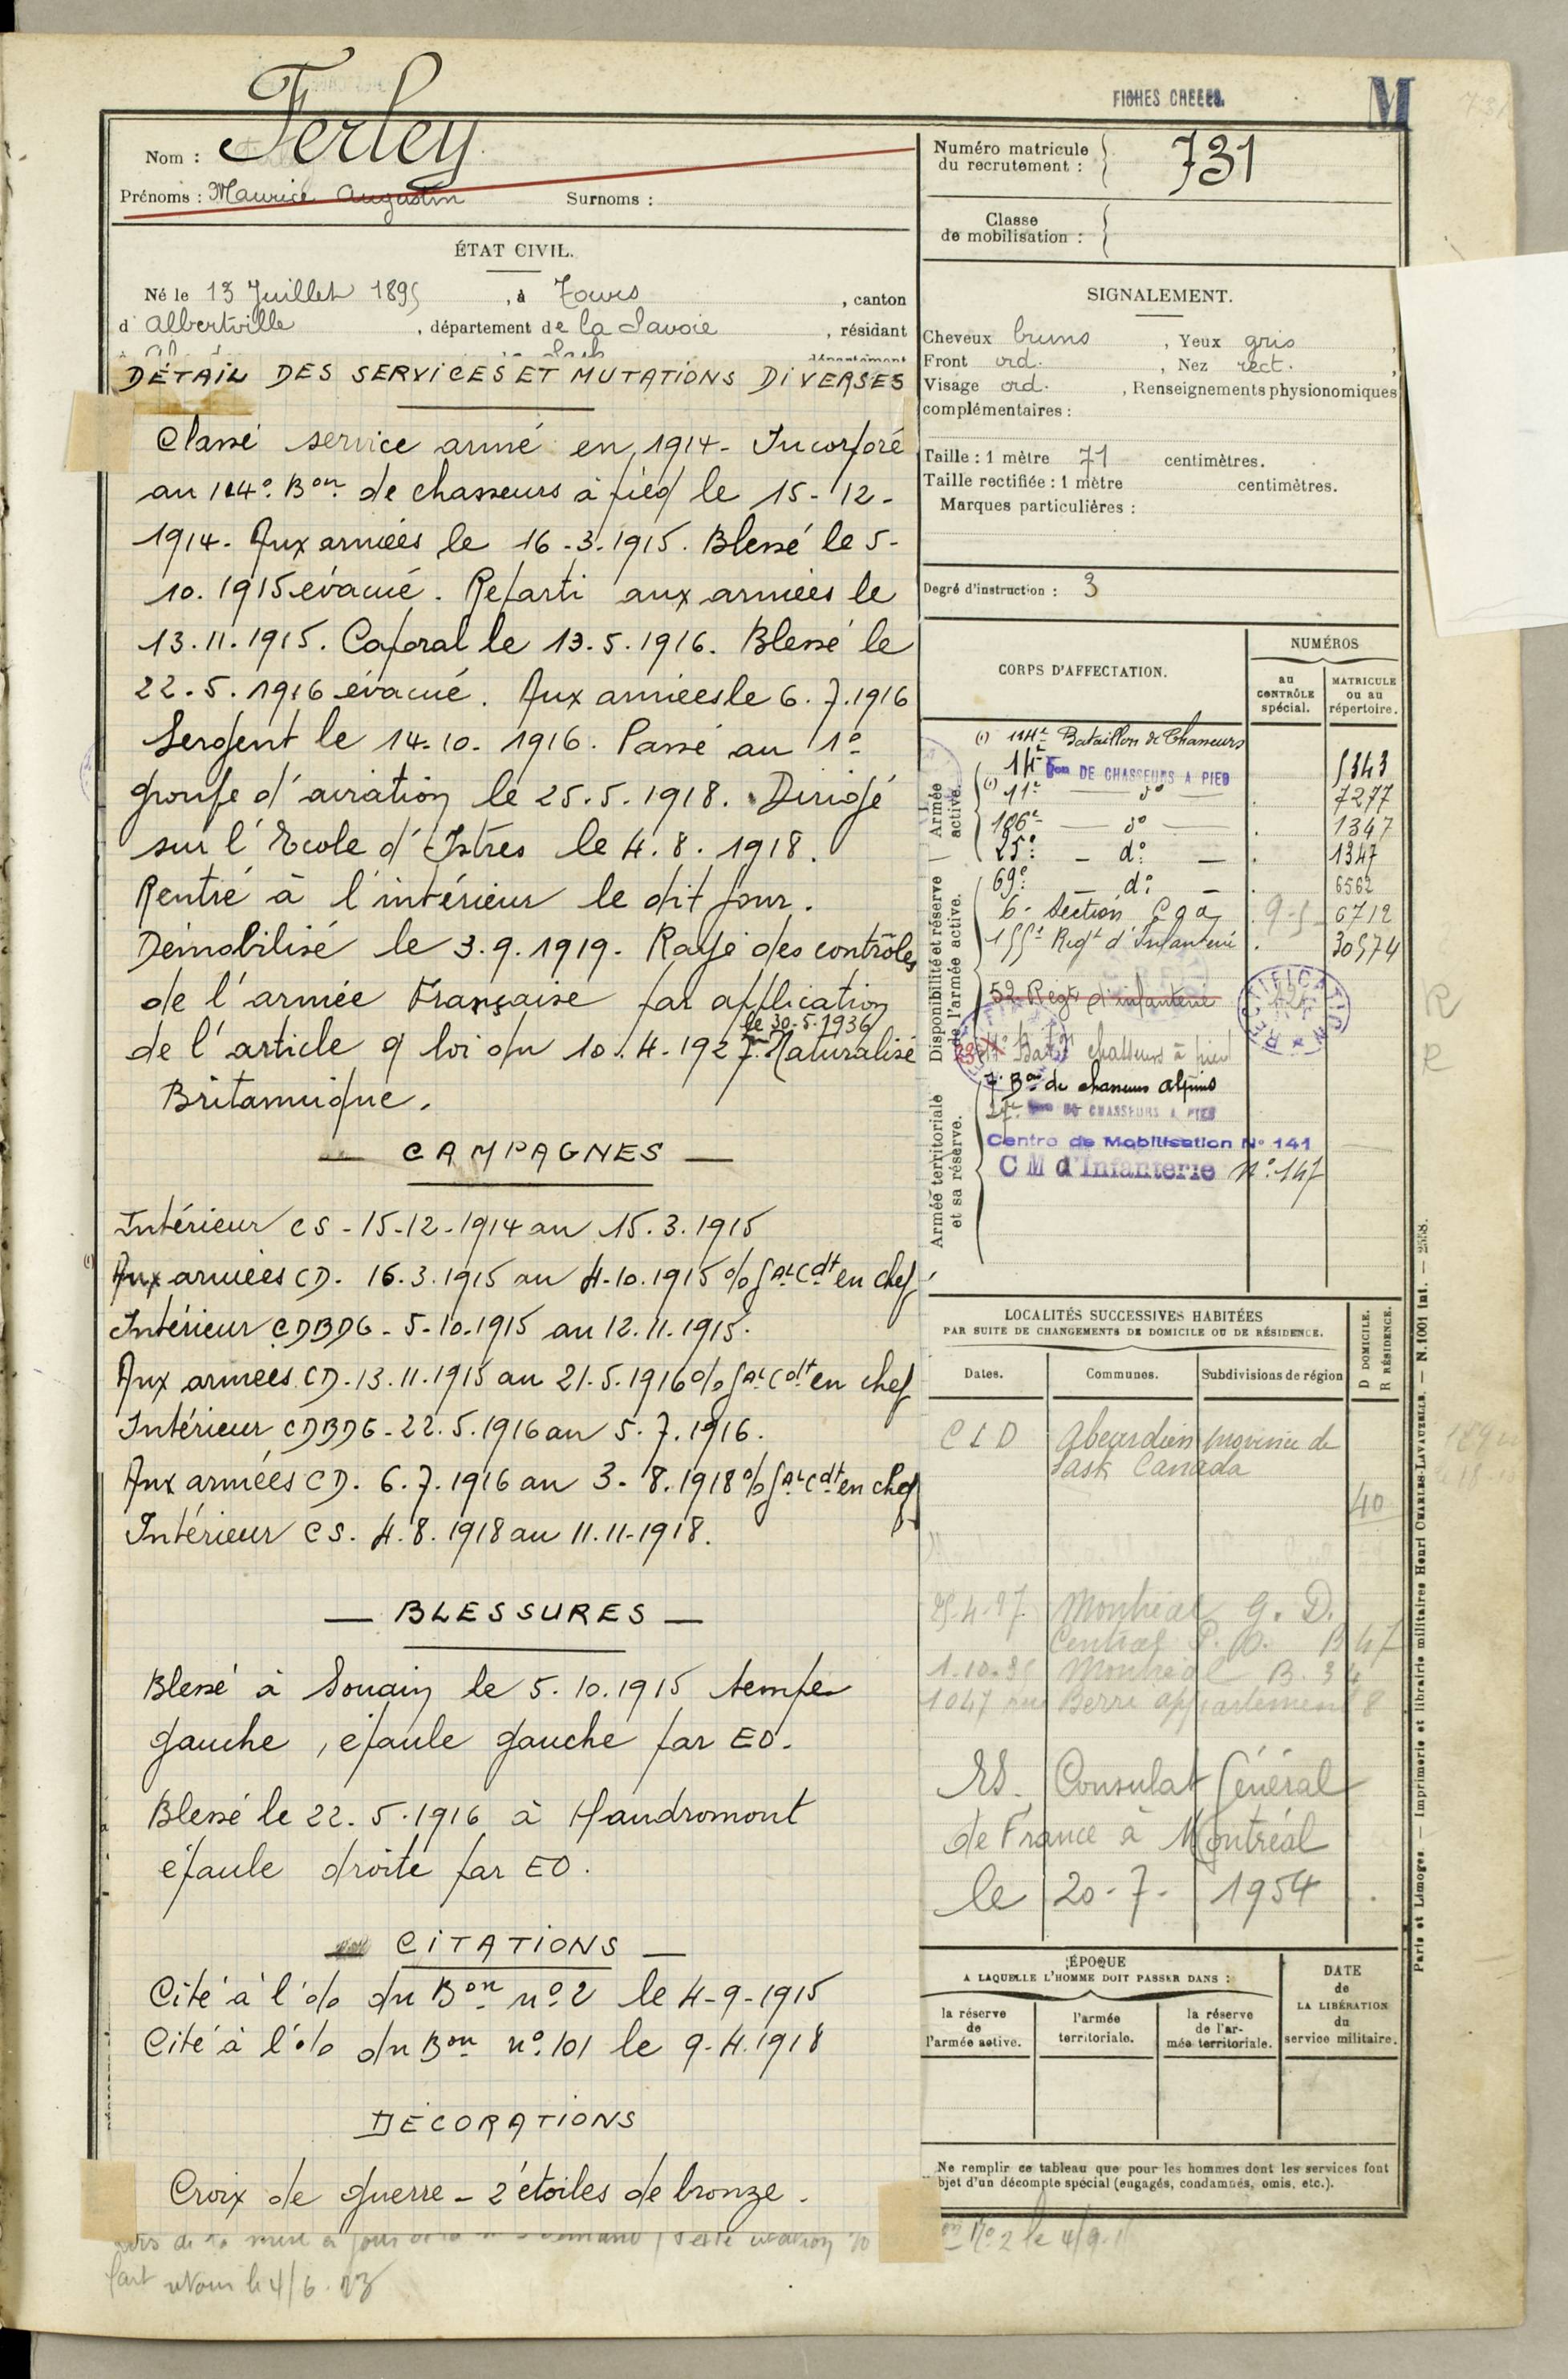 FICHES CREEES.
M
731
Nom : Ferley
Prénoms : Maurice Augustin Surnoms :
ÉTAT CIVIL.
Né le 13 Juillet 1895, à Tours, canton
d'Albertville, département de la Savoie, résidant
DÉTAIL DES SERVICES ET MUTATIONS DIVERSES
Classé service armé en 1914 - Incorporé
au 114° Bon de chasseurs à pied le 15-12-
1914. Aux armées le 16.3.1915. Blessé le 5-
10.1915 évacué. Reparti aux armées le
13.11.1915. Caporal le 13.5.1916. Blessé le
22.5.1916 évacué. Aux armées le 6.7.1916
Sergent le 14-10-1916. Passé au 1°
groupe d'aviation le 25.5.1918. Dirigé
sur l'Ecole d'Istres le 4.8.1918.
Rentré à l'intérieur le dit jour.
Démobilisé le 3.9.1919. Rayé des contrôles
de l'armée Française par application
le 30-5-1936
de l'article 9 loi du 10.4.1927. Naturalisé
Britannique.
— CAMPAGNES —
Intérieur CS - 15-12-1914 au 15.3.1915
(1) Aux armées CD. 16.3.1915 au 4-10.1915 % Gal Cdt en chef
Intérieur CDBDG - 5-10.1915 au 12.11.1915.
Aux armées CD. 13.11.1915 au 21.5.1916 % Gal Cdt en chef
Intérieur CDBDG - 22.5.1916 au 5.7.1916.
Aux armées CD. 6.7.1916 au 3-8.1918 % Gal Cdt en chef
Intérieur CS. 4.8.1918 au 11.11-1918.
— BLESSURES —
Blessé à Souain le 5.10.1915 tempe
gauche, épaule gauche par EO.
Blessé le 22.5.1916 à Haudromont
épaule droite par EO.
CITATIONS —
Cité à l'o/o du Bon n° 2 le 4-9-1915
Cité à l'o/o du Bon n° 101 le 9-4.1918
DÉCORATIONS
Croix de guerre - 2 étoiles de bronze.
Numéro matricule
du recrutement : 731
Classe
de mobilisation :
SIGNALEMENT.
Cheveux bruns, Yeux gris,
Front ord., Nez rect.,
Visage ord., Renseignements physionomiques
complémentaires :
Taille : 1 mètre 71 centimètres.
Taille rectifiée : 1 mètre centimètres.
Marques particulières :
Degré d'instruction : 3
CORPS D'AFFECTATION.
NUMÉROS
au CONTRÔLE spécial.
MATRICULE ou au répertoire.
Armée active.
(1) 114e Bataillon de Chasseurs 5343
14e Bon DE CHASSEURS A PIED 7277
(1) 11e — do — 1347
106e — do — 1347
25e — do — 6562
69e — do —
6e Section C o a 9-5 6712
155e Regt d'Infanterie 30574
Disponibilité et réserve de l'armée active.
52 Regt d'infanterie
RECTIFICATION
Batn chasseurs à pied
7e Bon de chasseurs alpins
27e Bon DE CHASSEURS A PIED
Armée territoriale et sa réserve.
Centre de Mobilisation N° 141
C M d'Infanterie N° 147
LOCALITÉS SUCCESSIVES HABITÉES
PAR SUITE DE CHANGEMENTS DE DOMICILE OU DE RÉSIDENCE.
D DOMICILE.
R RÉSIDENCE.
Dates. Communes. Subdivisions de région
CLD Abeardien province de
Sask Canada
40
25-4-27 Montréal G. D.
Central P. O. B 47
1-10-35 Montréal B. 34
1047 rue Berri appartement 8
RS. Consulat Général
de France à Montréal
le 20-7-1954
ÉPOQUE
A LAQUELLE L'HOMME DOIT PASSER DANS :
DATE
de
LA LIBÉRATION
du
service militaire.
la réserve
de
l'armée active.
l'armée
territoriale.
la réserve
de l'ar-
mée territoriale.
Ne remplir ce tableau que pour les hommes dont les services font
objet d'un décompte spécial (engagés, condamnés, omis, etc.).
N° 2 le 4/9
R
R
Paris et Limoges. — Imprimerie et librairie militaires Henri CHARLES-LAVAUZELLE. — N. 1001 int. — 2558.